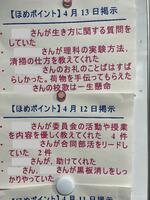 【ほめポイント】4月13日掲示
さんが生き方に関する質問をしていた
さんが理科の実験方法、
清掃の仕方を教えてくれた
さんのお礼のことばはすばらしかった。荷物を手伝ってもらえた
さんの校歌は一生懸命
【ほめポイント】4月12日掲示
さんが委員会の活動や授業
を内容を優しく教えてくれた 4件
さんが合同部活をリードし
ていた 2件
さんが、助けてくれた
さん、さんが黒板消しをしっ
かりやっていた
【ほめポイント】4月11日掲示